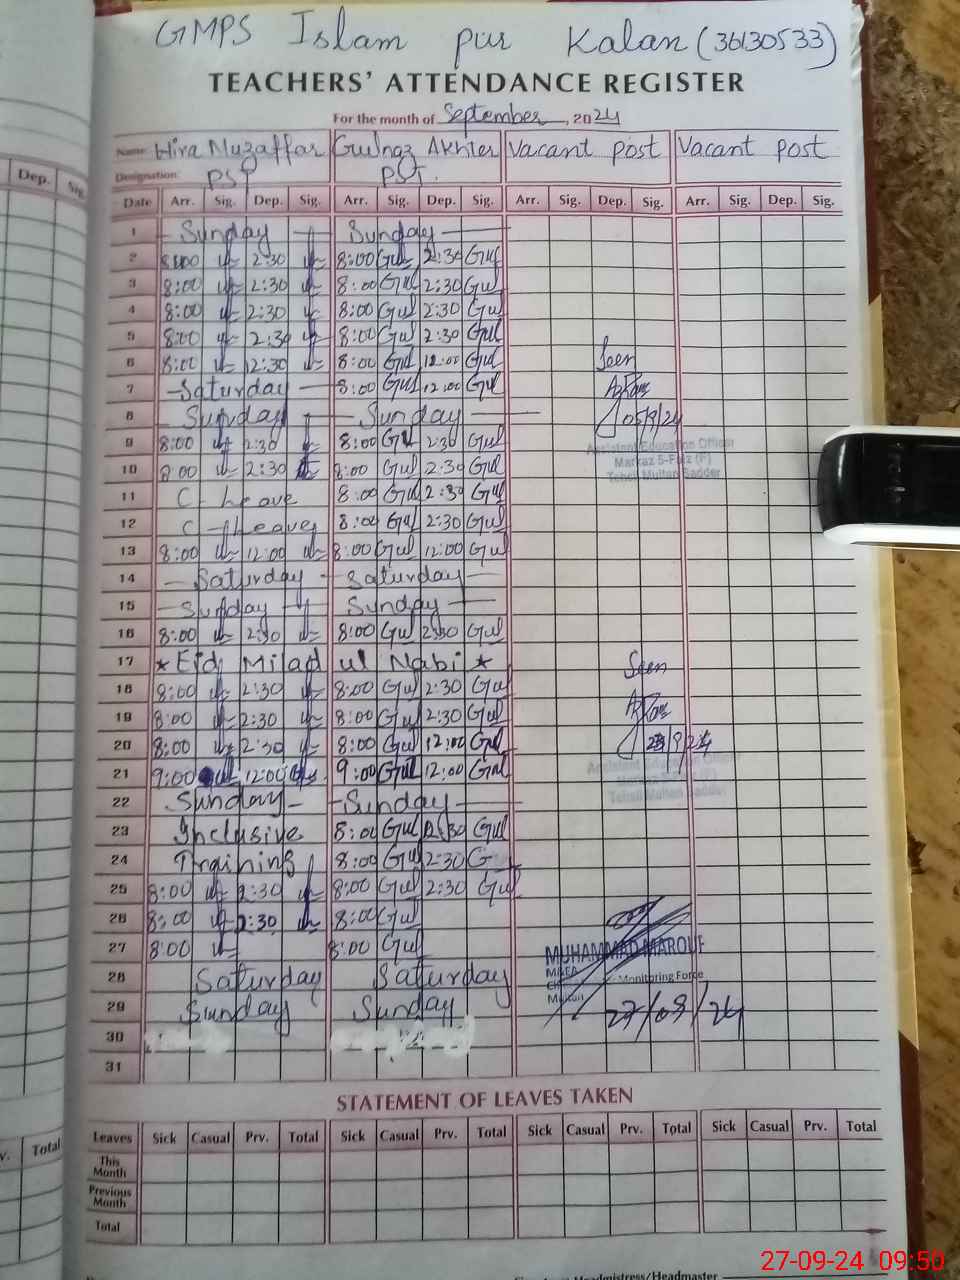 GMPS Islam pur Kalan (36130533)
TEACHERS' ATTENDANCE REGISTER
For the month of September, 2024
Name: Hira Muzaffar Gulnaz Akhter Vacant post Vacant post
Designation: PST PST.
Dep. Sig.
Date Arr. Sig. Dep. Sig. Arr. Sig. Dep. Sig. Arr. Sig. Dep. Sig. Arr. Sig. Dep. Sig.
1 Sunday Sunday
2 8:00 2:30 8:00 Gul 2:30 Gul
3 8:00 2:30 8:00 Gul 2:30 Gul
4 8:00 2:30 8:00 Gul 2:30 Gul
5 8:00 2:30 8:00 Gul 2:30 Gul
6 8:00 12:30 8:00 Gul 12:00 Gul Seen
7 Saturday 8:00 Gul 12:00 Gul
8 Sunday Sunday 05/9/24
9 8:00 2:30 8:00 Gul 2:30 Gul Assistant Education Officer
10 8:00 2:30 8:00 Gul 2:30 Gul Markaz 5-Faiz (F)
Tehsil Multan Sadder
11 C - Leave 8:00 Gul 2:30 Gul
12 C - Leave 8:00 Gul 2:30 Gul
13 8:00 12:00 8:00 Gul 12:00 Gul
14 Saturday Saturday
15 Sunday Sunday
16 8:00 2:30 8:00 Gul 2:30 Gul
17 * Eid Milad ul Nabi * Seen
18 8:00 2:30 8:00 Gul 2:30 Gul
19 8:00 2:30 8:00 Gul 2:30 Gul
20 8:00 2:30 8:00 Gul 12:00 Gul 23/9/24
21 9:00 12:00 9:00 Gul 12:00 Gul Assistant Education Officer
Tehsil Multan Sadder
22 Sunday Sunday
23 Inclusive 8:00 Gul 2:30 Gul
24 Training 8:00 Gul 2:30 G
25 8:00 2:30 8:00 Gul 2:30 Gul
26 8:00 2:30 8:00 Gul
27 8:00 8:00 Gul MUHAMMAD MAROUF
28 Saturday Saturday Monitoring Force
Multan
29 Sunday Sunday 27/09/24
30
31
STATEMENT OF LEAVES TAKEN
Total
Leaves Sick Casual Prv. Total Sick Casual Prv. Total Sick Casual Prv. Total Sick Casual Prv. Total
This Month
Previous Month
Total
Headmistress/Headmaster
27-09-24 09:50